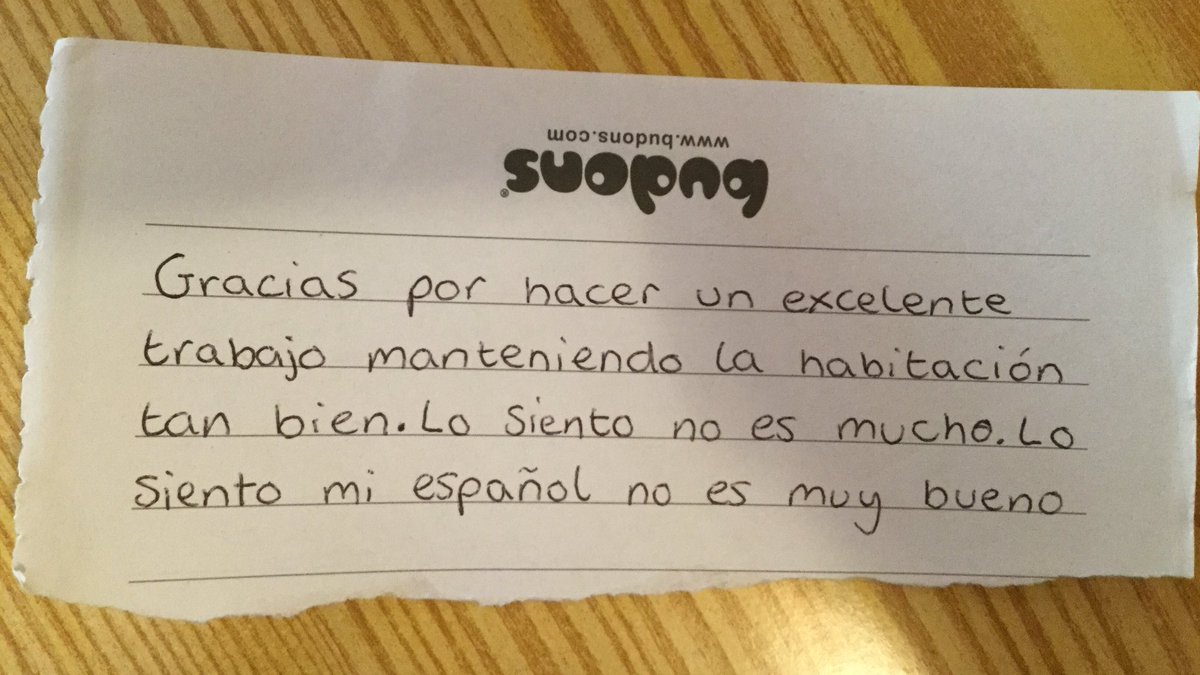 www.budons.com
budons®
Gracias por hacer un excelente
trabajo manteniendo la habitación
tan bien. Lo siento no es mucho. Lo
siento mi español no es muy bueno